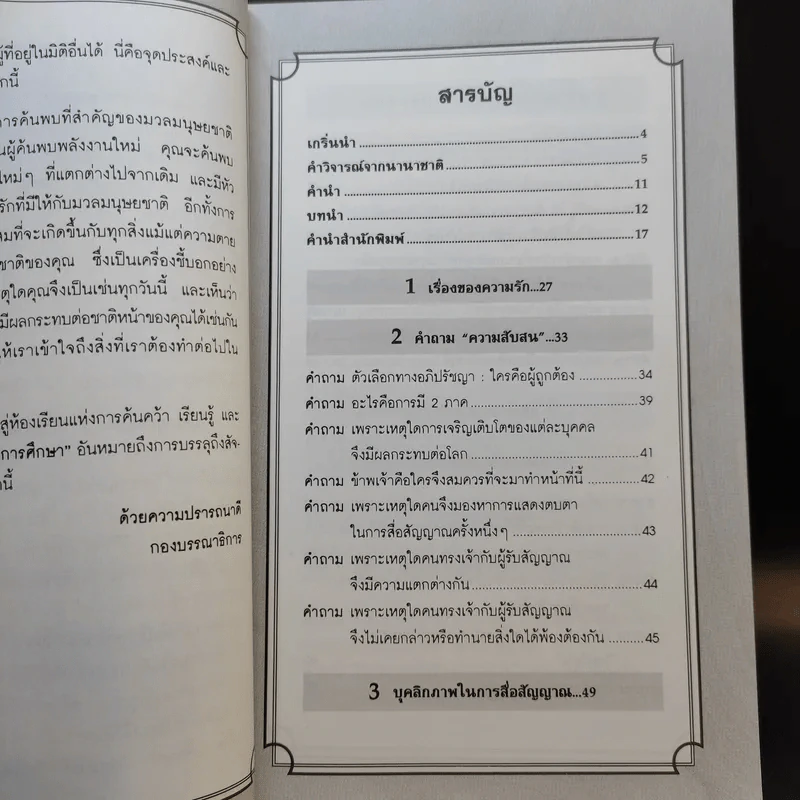 ผู้ที่อยู่ในมิติอื่นได้ นี่คือจุดประสงค์และ
กนี้
การค้นพบที่สำคัญของมวลมนุษยชาติ
นผู้ค้นพบพลังงานใหม่ คุณจะค้นพบ
ใหม่ๆ ที่แตกต่างไปจากเดิม และมีหัว
รักที่มีให้กับมวลมนุษยชาติ อีกทั้งการ
มที่จะเกิดขึ้นกับทุกสิ่งแม้แต่ความตาย
ชาติของคุณ ซึ่งเป็นเครื่องชี้บอกอย่าง
หตุใดคุณจึงเป็นเช่นทุกวันนี้ และเห็นว่า
มีผลกระทบต่อชาติหน้าของคุณได้เช่นกัน
ให้เราเข้าใจถึงสิ่งที่เราต้องทำต่อไปใน
สู่ห้องเรียนแห่งการค้นคว้า เรียนรู้ และ
การศึกษา” อันหมายถึงการบรรลุถึงสัจ-
านี้
ด้วยความปรารถนาดี
กองบรรณาธิการ
สารบัญ
เกริ่นนำ ........ 4
คำวิจารณ์จากนานาชาติ ........ 5
คำนำ ........ 11
บทนำ ........ 12
คำนำสำนักพิมพ์ ........ 17
1 เรื่องของความรัก...27
2 คำถาม “ความสับสน”...33
คำถาม ตัวเลือกทางอภิปรัชญา : ใครคือผู้ถูกต้อง ........ 34
คำถาม อะไรคือการมี 2 ภาค ........ 39
คำถาม เพราะเหตุใดการเจริญเติบโตของแต่ละบุคคล
จึงมีผลกระทบต่อโลก ........ 41
คำถาม ข้าพเจ้าคือใครจึงสมควรที่จะมาทำหน้าที่นี้ ........ 42
คำถาม เพราะเหตุใดคนจึงมองหาการแสดงตบตา
ในการสื่อสัญญาณครั้งหนึ่งๆ ........ 43
คำถาม เพราะเหตุใดคนทรงเจ้ากับผู้รับสัญญาณ
จึงมีความแตกต่างกัน ........ 44
คำถาม เพราะเหตุใดคนทรงเจ้ากับผู้รับสัญญาณ
จึงไม่เคยกล่าวหรือทำนายสิ่งใดได้พ้องต้องกัน ........ 45
3 บุคลิกภาพในการสื่อสัญญาณ...49